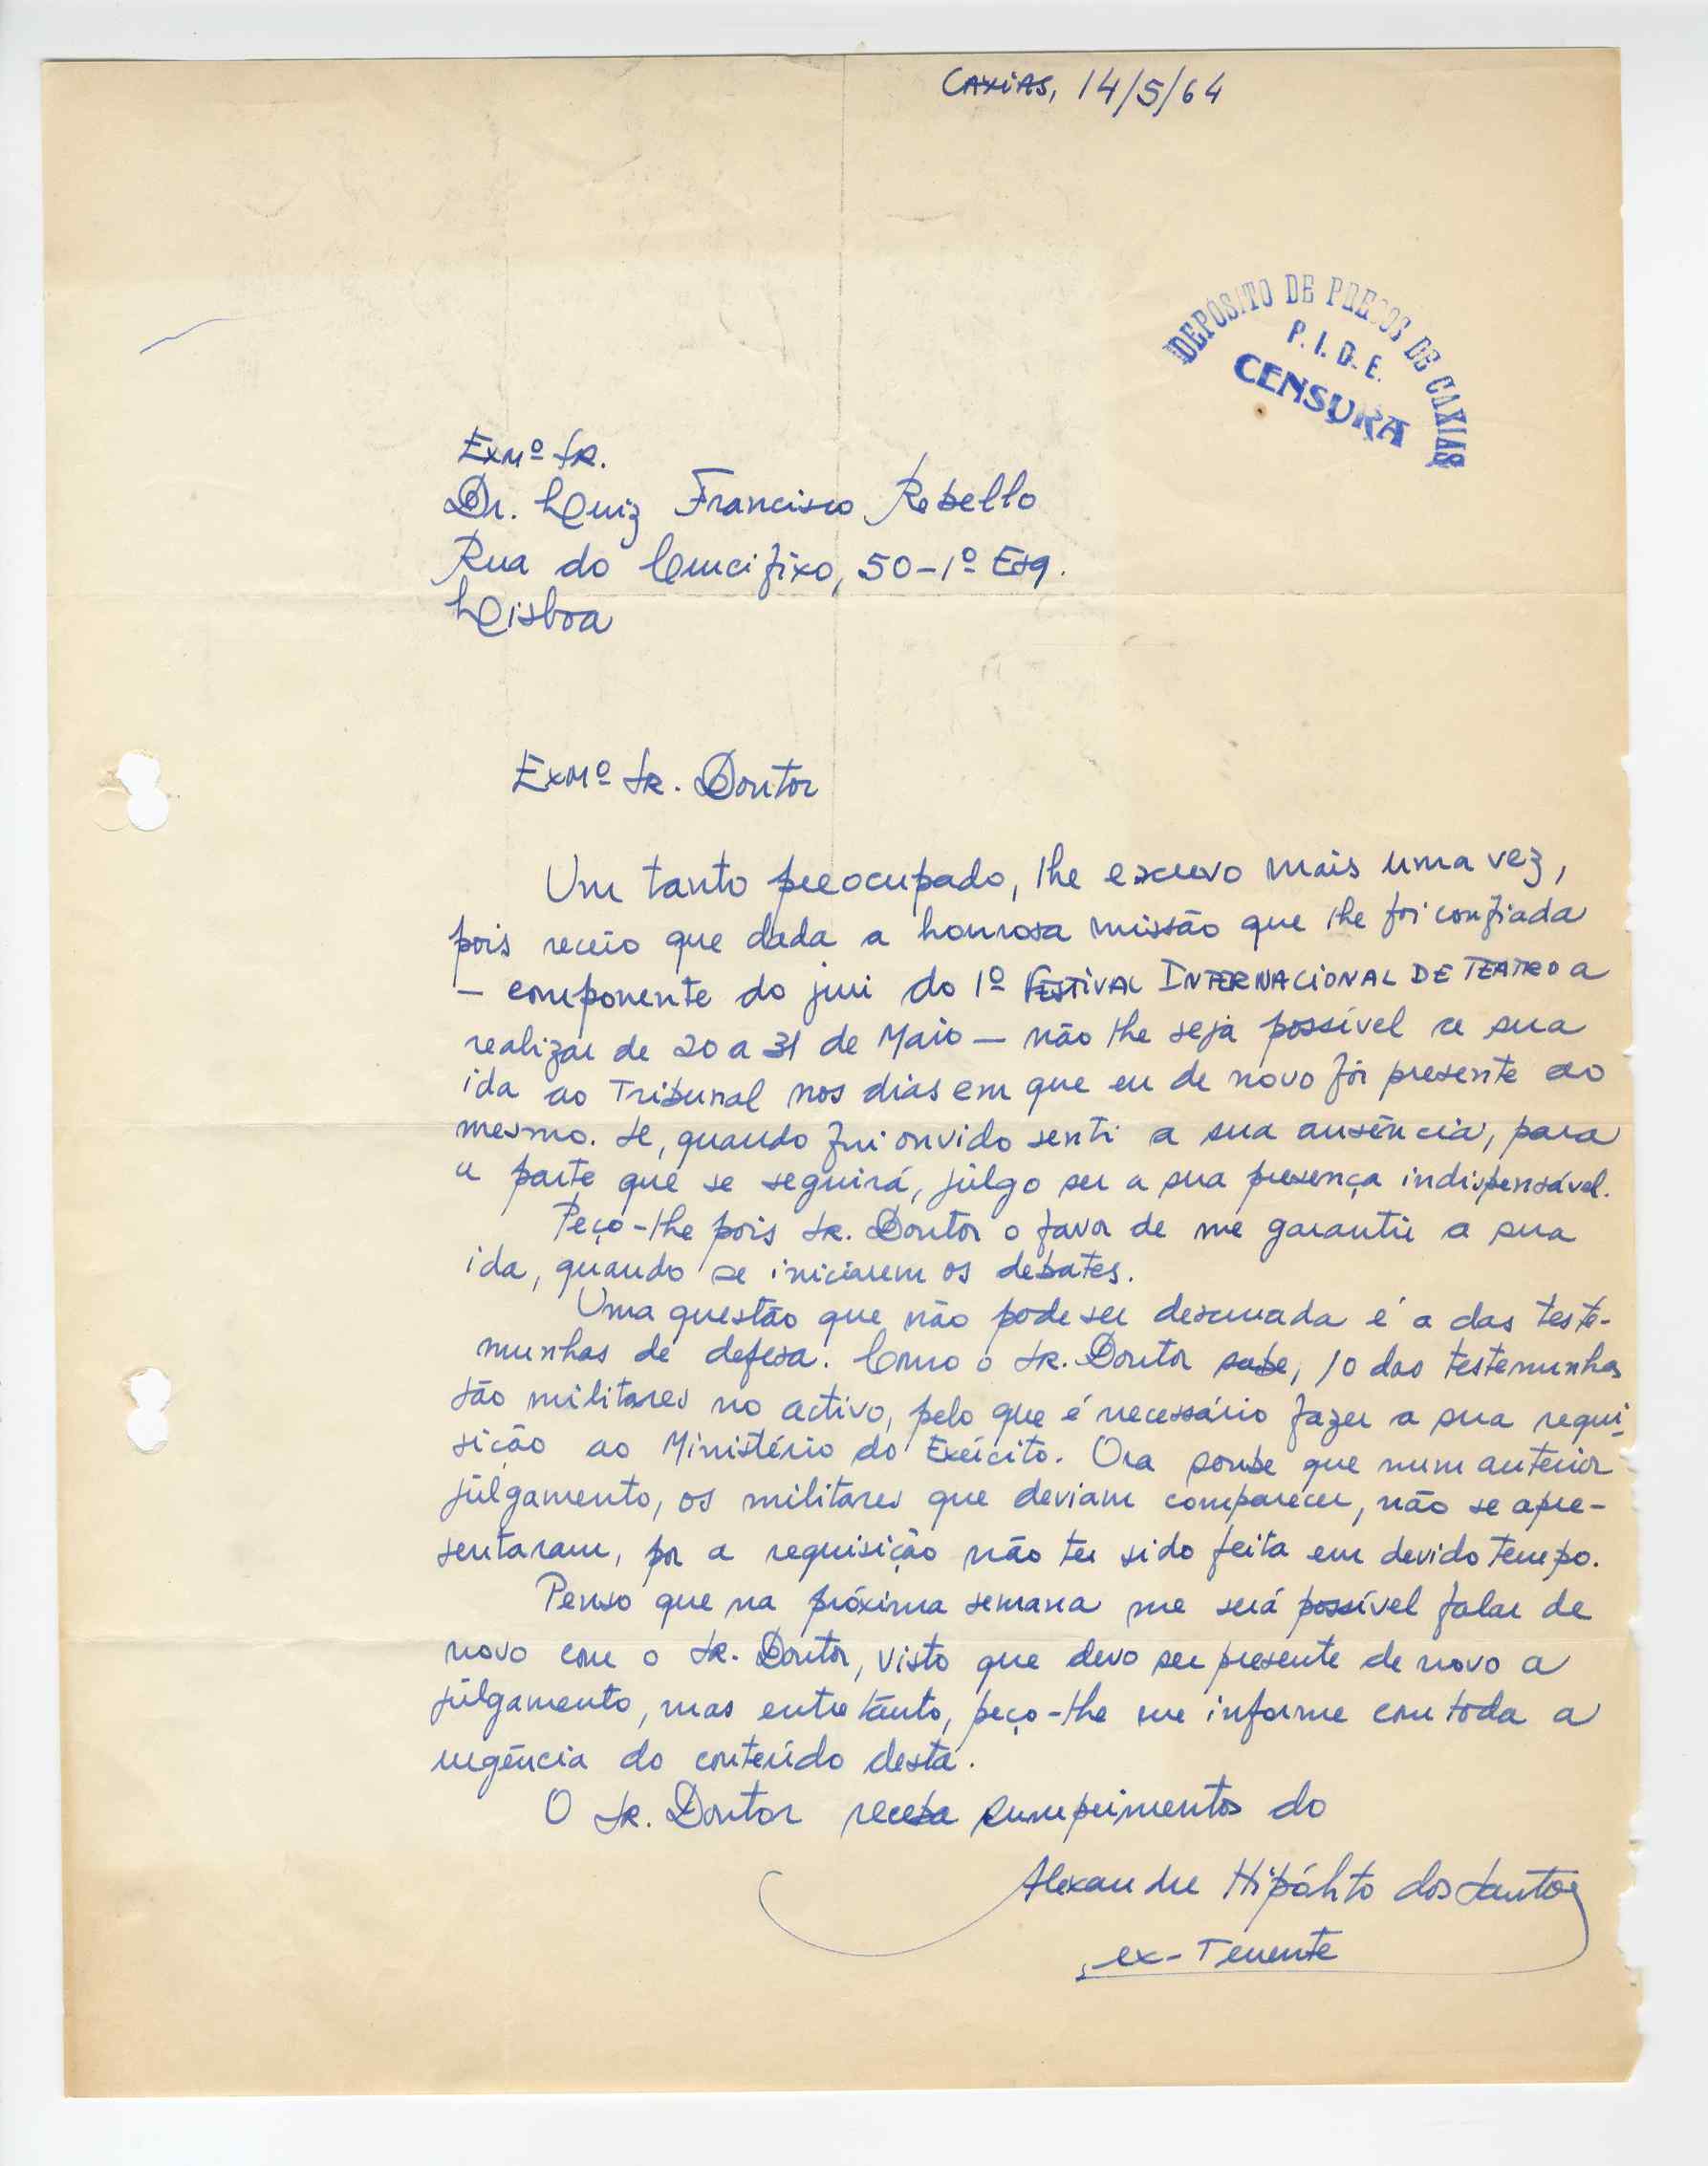 Caxias, 14/5/64
DEPÓSITO DE PRESOS DE CAXIAS
P. I. D. E.
CENSURA
Exmº Sr.
Dr. Luiz Francisco Rebello
Rua do Crucifixo, 50-1º Esq.
Lisboa
Exmº Sr. Doutor
Um tanto preocupado, lhe escrevo mais uma vez,
pois receio que dada a honrosa missão que lhe foi confiada
— componente do juri do 1º FESTIVAL INTERNACIONAL DE TEATRO a
realizar de 20 a 31 de Maio — não lhe seja possível a sua
ida ao Tribunal nos dias em que eu de novo fôr presente ao
mesmo. Se, quando fui ouvido senti a sua ausência, para
a parte que se seguirá, júlgo ser a sua presença indispensável.
Peço-lhe pois Sr. Doutor o favor de me garantir a sua
ida, quando se iniciarem os debates.
Uma questão que não pode ser descurada é a das teste-
munhas de defesa. Como o Sr. Doutor sabe, 10 das testemunhas
são militares no activo, pelo que é necessário fazer a sua requi-
sição ao Ministério do Exército. Ora soube que num anterior
júlgamento, os militares que deviam comparecer, não se apre-
sentaram, por a requisição não ter sido feita em devido tempo.
Penso que na próxima semana me será possível falar de
novo com o Sr. Doutor, visto que devo ser presente de novo a
júlgamento, mas entretânto, peço-lhe me informe com toda a
urgência do conteúdo desta.
O Sr. Doutor receba cumprimentos do
Alexandre Hipólito dos Santos
ex-Tenente